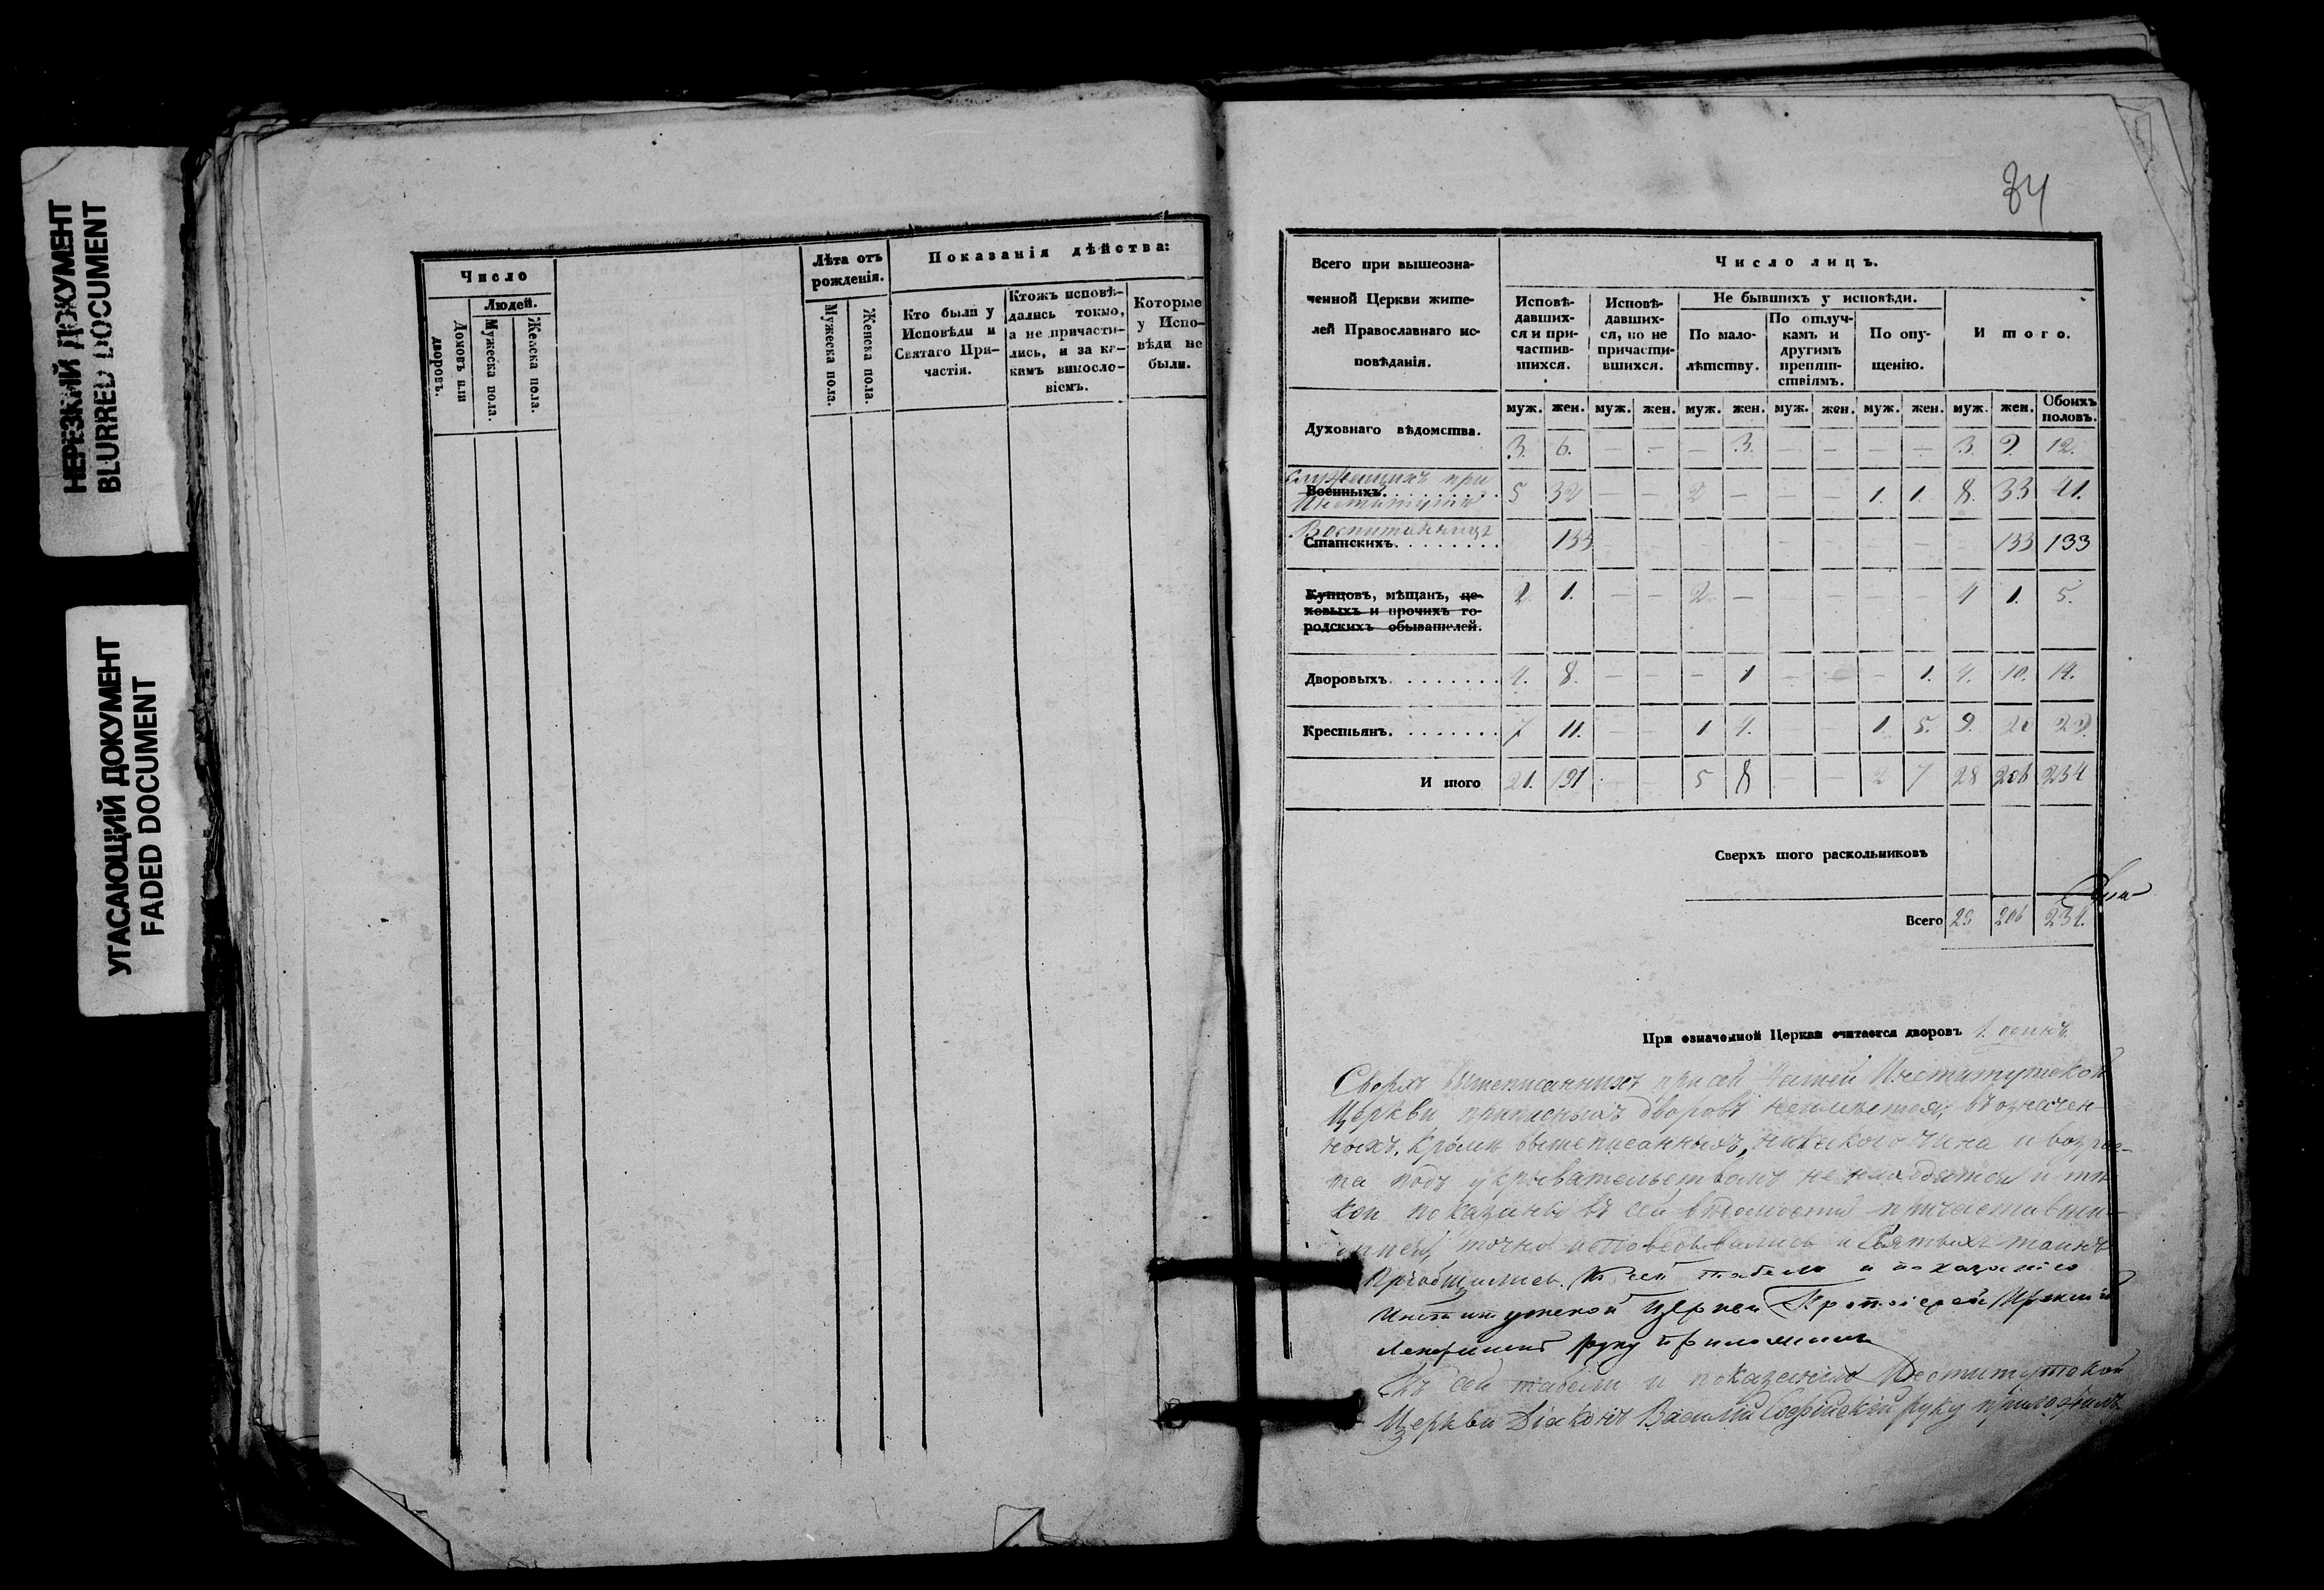 НЕРЕЗКИЙ ДОКУМЕНТ
BLURRED DOCUMENT
УГАСАЮЩИЙ ДОКУМЕНТ
FADED DOCUMENT
Число
Людей.
Домовъ или дворовъ.
Мужеска пола.
Женска пола.
Лѣта отъ
рожденія.
Мужеска пола.
Женска пола.
Показанія дѣйства:
Кто были у
Исповѣди и
Святаго При-
частія.
Ктожъ исповѣ-
дались токмо,
а не причасти-
лись, и за ка-
кимъ винословіемъ.
Которые
у Испо-
вѣди не
были.
34
Всего при вышеозна-
ченной Церкви жите-
лей Православнаго ис-
повѣданія.
Число лицъ.
Исповѣ-
давших-
ся и при-
частив-
шихся.
Исповѣ-
давших-
ся, но не
причасти-
вшихся.
Не бывшихъ у исповѣди.
По мало-
лѣтству.
По отлуч-
камъ и
другимъ
препят-
ствіямъ.
По опу-
щенію.
Итого.
муж. жен. муж. жен. муж. жен. муж. жен. муж. жен. муж. жен. Обоихъ половъ.
Духовнаго вѣдомства. 3. 6. — — — 3. — — — — 3. 9. 12.
Служащихъ при
Военныхъ. 5 32 — — 2 — — — 1. 1. 8. 33 41.
Институтѣ
Воспитанницъ
Статскихъ. 133 — — — — — — — — 133 133
Купцовъ, мѣщанъ, це-
ховыхъ и прочихъ го-
родскихъ обывателей. 2. 1. — — 2 — — — — — 4 1. 5.
Дворовыхъ. 4. 8. — — — 1 — — — 1. 4. 10. 14.
Крестьянъ. 7 11. — — 1 4. — — 1 5. 9. 20 29.
И того 21. 191 — — 5 8 — — 2 7 28 206 234
Сверхъ того раскольниковъ
Всего 28 206 234.
При означенной Церкви считается дворовъ 1. одинъ
Сверхъ вышеписанныхъ при сей Институтской
Церкви приписныхъ дворовъ неимѣется, въ означен-
ныхъ, кромѣ вышеписанныхъ, никакого чина и возрас-
та подъ укрывательствомъ не находится и та-
кои показаны въ сей вѣдомости причастивши-
точно исповедывались и Святыхъ таинъ
Пріобщились. Къ сей табели и показанію
Институтской Церкви Протоіерей
руку приложилъ
Къ сей табели и показанію Институтской
Церкви Діаконъ Василій Софійскій руку приложилъ